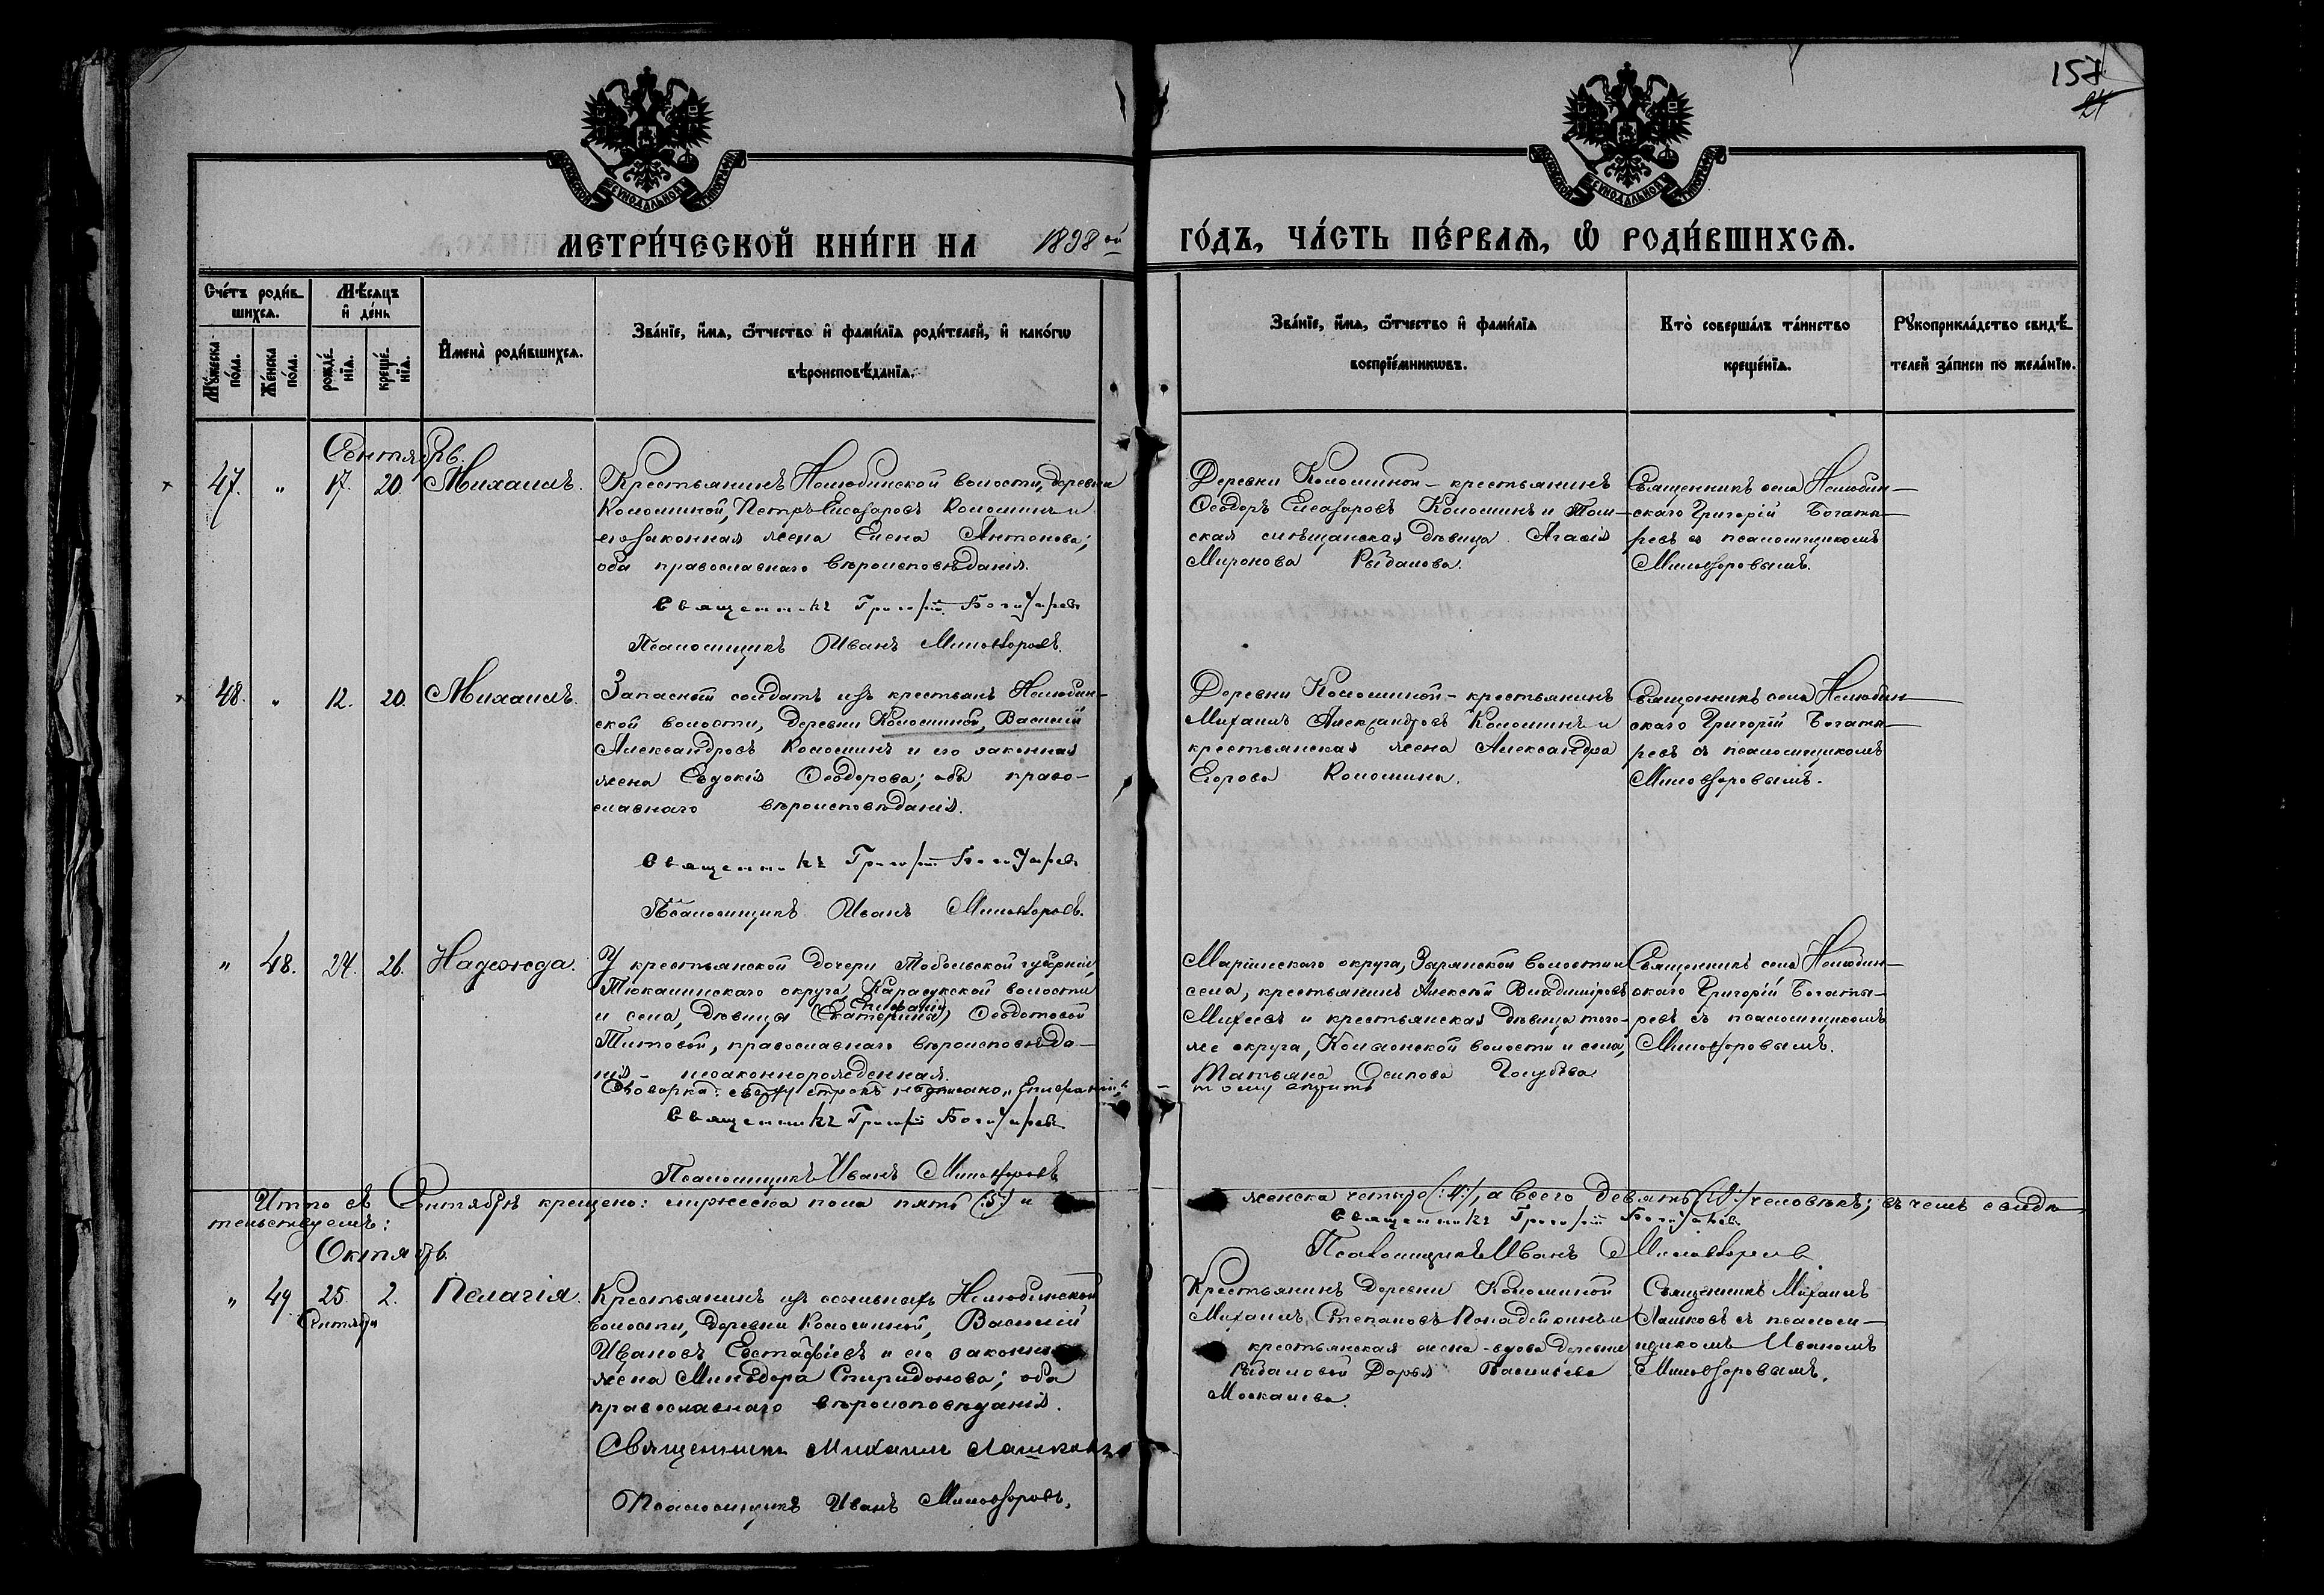 157
24
МЕТРИ́ЧЕСКОЙ КНИ́ГИ НА 1898 ой ГО́ДЪ, ЧА́СТЬ ПЕ́РВАѦ, Ѿ РОДИ́ВШИХСѦ.
Сче́тъ роди́в-
шихсѧ.
Мѣ́сѧцъ
и҆ де́нь
Мꙋ́жеска
по́ла.
Же́нска
по́ла.
рожде́-
нїѧ.
креще́-
нїѧ.
И҆мена̀ роди́вшихсѧ.
Зва́нїе, и҆́мѧ, ѻ҆́тчество и҆ фами́лїѧ роди́телей, и҆ како́гѡ
вѣроисповѣ́данїѧ.
Зва́нїе, и҆́мѧ, ѻ҆́тчество и҆ фами́лїѧ
воспрїе́мникѡвъ.
Кто̀ соверша́лъ та́инство
креще́нїѧ.
Рꙋкоприкла́дство свидѣ́-
телей за́писи по жела́нїю.
Сентябрь.
47. " 17. 20. Михаилъ.
Крестьянинъ Нелюбинской волости, деревни
Коломиной, Петръ Елеазаровъ Коломинъ и
его законная жена Елена Антонова;
оба православнаго вѣроисповѣданія.
Священникъ Григорій Богатыревъ
Псаломщикъ Иванъ Миловзоровъ.
Деревни Коломиной - крестьянинъ
Ѳеодоръ Елеазаровъ Коломинъ и Том-
ская мѣщанская дѣвица Агаѳія
Миронова Рыбалова.
Священникъ села Нелюбин-
скаго Григорій Богаты-
ревъ съ псаломщикомъ
Миловзоровымъ.
48. " 12. 20. Михаилъ.
Запасный солдатъ изъ крестьянъ Нелюбин-
ской волости, деревни Коломиной, Василій
Александровъ Коломинъ и его законная
жена Евдокія Ѳеодорова; оба право-
славнаго вѣроисповѣданія.
Священникъ Григорій Богатыревъ
Псаломщикъ Иванъ Миловзоровъ.
Деревни Коломиной - крестьянинъ
Михаилъ Александровъ Коломинъ и
крестьянская жена Александра
Егорова Коломина.
Священникъ села Нелюбин-
скаго Григорій Богаты-
ревъ съ псаломщикомъ
Миловзоровымъ.
" 48. 24. 26. Надежда.
У крестьянской дочери Тобольской губерніи,
Тюкалинскаго округа, Карасукской волости
Епифаніи
и села, дѣвицы (Екатерины) Ѳеодотовой
Титовой, православнаго вѣроисповѣда-
нія - незаконнорожденная.
Оговорка: сверху строкъ надписано „Епифаніи“
Священникъ Григорій Богатыревъ
Псаломщикъ Иванъ Миловзоровъ
Маріинскаго округа, Зырянской волости и
села, крестьянинъ Алексѣй Владиміровъ
Михеевъ и крестьянская дѣвица того-
же округа, волости и села,
Татьяна Осипова Голубева
тому вѣрить
Священникъ села Нелюбин-
скаго Григорій Богаты-
ревъ съ псаломщикомъ
Миловзоровымъ.
Итого въ Сентябрѣ крещено: мужеска пола пять (:5:) и женска четыре (:4:), а всего девять (:9:) человѣкъ; въ чемъ свидѣ-
тельствуемъ:
Священникъ Григорій Богатыревъ
Псаломщикъ Иванъ Миловзоровъ
Октябрь.
" 49. 25. 2. Пелагія.
Сентября
Крестьянинъ изъ ссыльныхъ Нелюбинской
волости, деревни Коломиной, Василій
Ивановъ Евстафіевъ и его законная
жена Минодора Спиридонова; оба
православнаго вѣроисповѣданія.
Священникъ Михаилъ Лашковъ
Псаломщикъ Иванъ Миловзоровъ.
Крестьянинъ деревни Коломиной
Михаилъ Степановъ и
крестьянская жена - вдова деревни
Рыбаловой Дарья Васильева
Москалева.
Священникъ Михаилъ
Лашковъ съ псалом-
щикомъ Иваномъ
Миловзоровымъ.